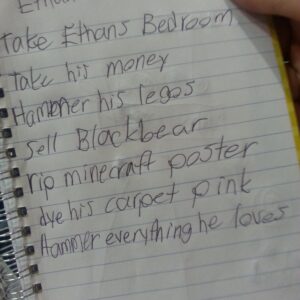 Take Ethans Bedroom
Take his money
Hammer his legos
Sell Blackbear
rip minecraft poster
dye his carpet pink
Hammer everything he loves